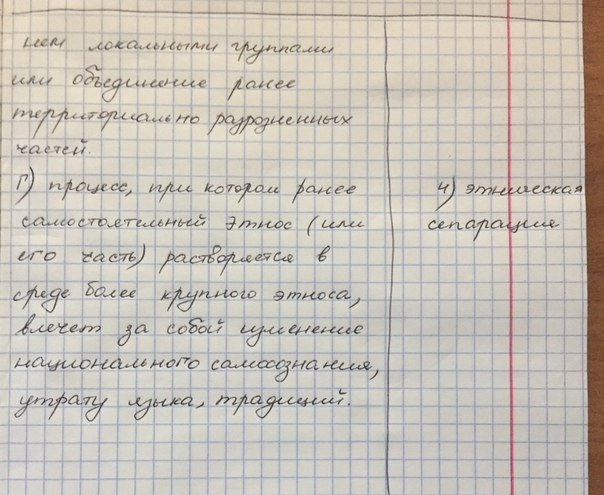 нем локальными группами
или объединение ранее
территориально разрозненных
частей.
Г) процесс, при котором ранее
самостоятельный этнос (или
его часть) растворяется в
среде более крупного этноса,
влечет за собой изменение
национального самосознания,
утрату языка, традиций.
4) этническая
сепарация